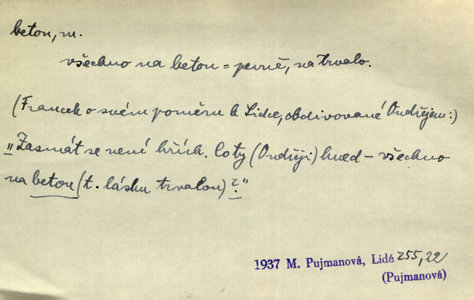 beton, m.
všechno na beton = pevně, na trvalo.
(Francek o svém poměru k Lidce, obdivované Ondřejem:)
"Zasmát se není hřích. Coty (Ondřeji) hned – všechno
na beton (t. lásku trvalou)?"
1937 M. Pujmanová, Lidé 255, 22
(Pujmanová)